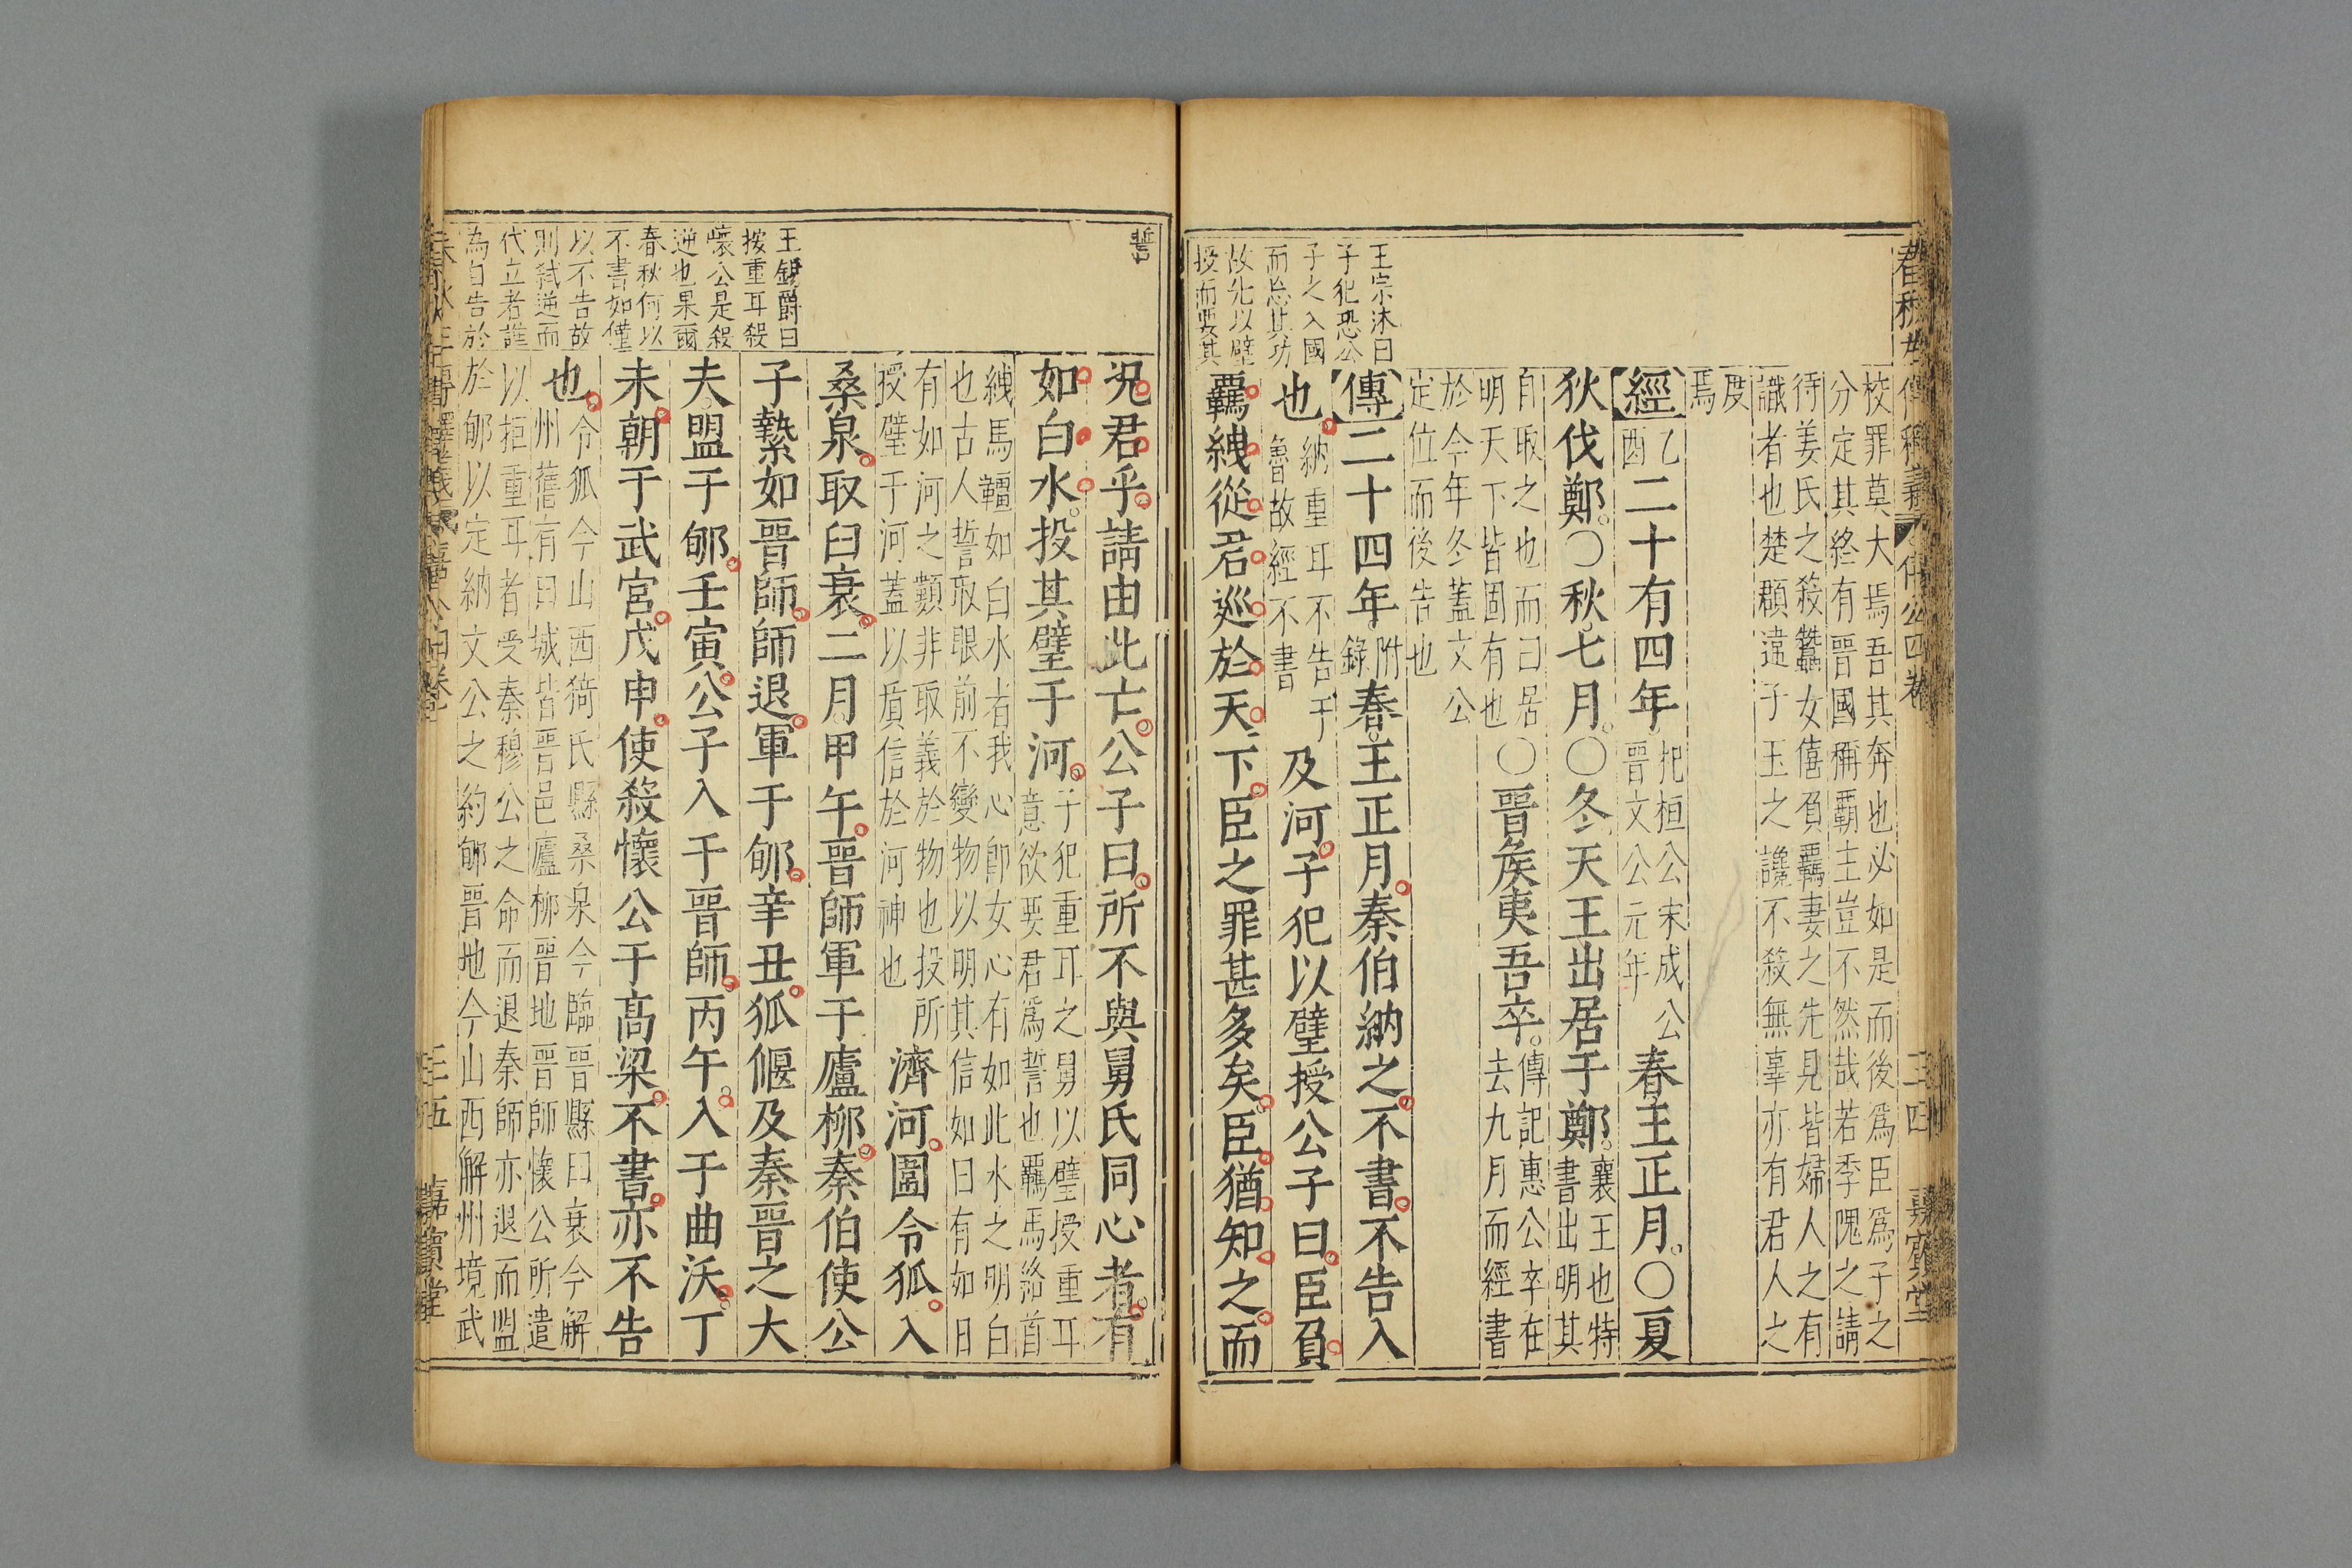 校罪莫大焉吾其奔也必如是而後爲臣爲子之
分定其終有晉國稱霸主豈不然哉若季隗之請
待姜氏之殺蠶女僖負羈妻之先見皆婦人之有
識者也楚頵遠子玉之讒不殺無辜亦有君人之
度
焉
【經】乙酉二十有四年杞桓公宋成公晉文公元年春王正月○夏
狄伐鄭○秋七月○冬天王出居于鄭襄王也特書出明其
自取之也而曰居
明天下皆固有也○晉侯夷吾卒傳記惠公卒在去九月而經書
於今年冬蓋文公
定位而後告也
【傳】二十四年附錄春王正月秦伯納之不書不告入
也納重耳不告于魯故經不書及河子犯以璧授公子曰臣負
羈紲從君巡於天下臣之罪甚多矣臣猶知之而
王宗沐曰
子犯恐公
子之入國
而忘其功
故先以璧
授而要其
誓
況君乎請由此亡公子曰所不與舅氏同心者有
如白水投其璧于河子犯重耳之舅以璧授重耳意欲要君爲誓也羈馬絡首
紲馬韁如白水者我心卽女心有如此水之明白
也古人誓取眼前不變物以明其信如日有如日
有如河之類非取義於物也投所
授璧于河蓋以質信於河神也濟河圍令狐入
桑泉取臼衰二月甲午晉師軍于廬柳秦伯使公
子縶如晉師師退軍于郇辛丑狐偃及秦晉之大
夫盟于郇壬寅公子入于晉師丙午入于曲沃丁
未朝于武宮戊申使殺懷公于高梁不書亦不告
也令狐今山西猗氏縣桑泉今臨晉縣臼衰今解
州舊有臼城皆晉邑廬柳晉地晉師懷公所遣
以拒重耳者受秦穆公之命而退秦師亦退而盟
於郇以定納文公之約郇晉地今山西解州境武
王錫爵曰
按重耳殺
懷公是殺
逆也果爾
春秋何以
不書如僅
以不告故
則弒逆而
代立者誰
為自告於
三十四
嘉賓堂
三五
嘉賓堂